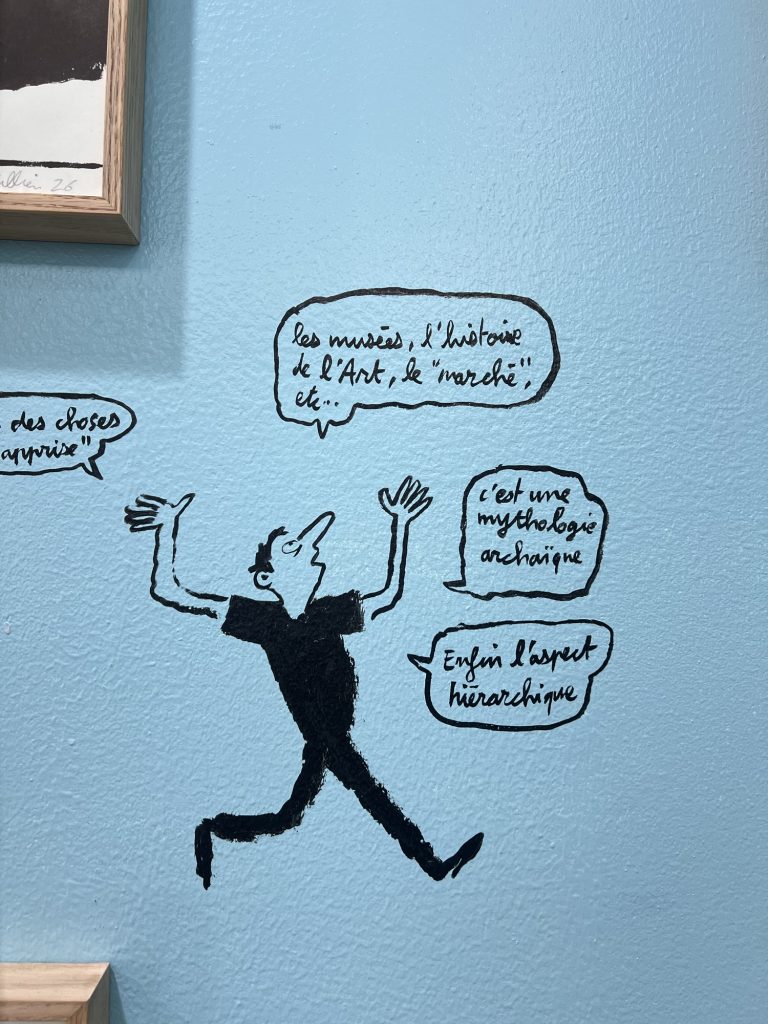 26
les musées, l'histoire
de l'Art, le "marché",
etc...
des choses
apprise"
c'est une
mythologie
archaïque
Enfin l'aspect
hiérarchique